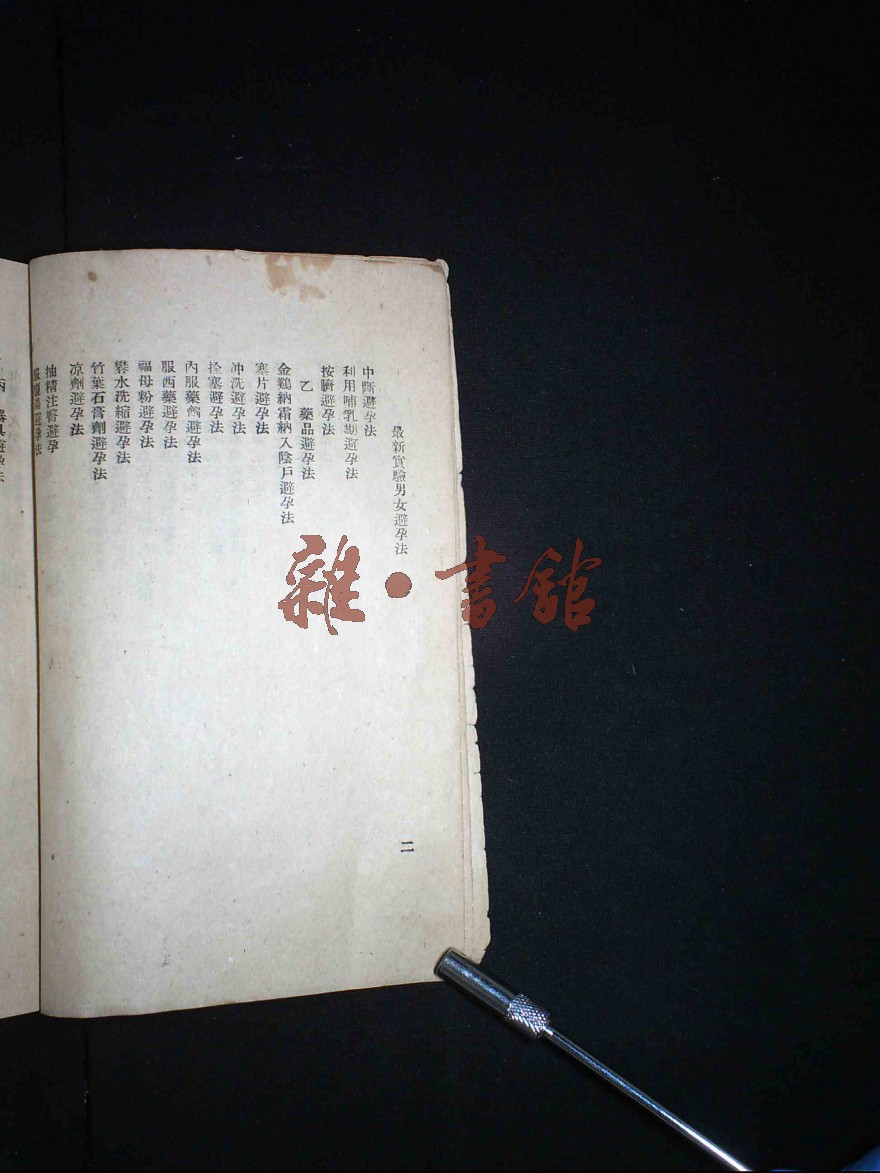 最新實驗男女避孕法
二
中斷避孕法
利用哺乳期避孕法
按臍避孕法
乙　藥品避孕法
金鷄納霜納入陰戶避孕法
塞片避孕法
冲洗避孕法
拴塞避孕法
內服藥劑避孕法
服西藥避孕法
福母粉避孕法
礬水洗縮避孕法
竹葉石膏劑避孕法
凉劑避孕法
抽精注臀避孕
避孕法
器具避孕法
雜·書舘